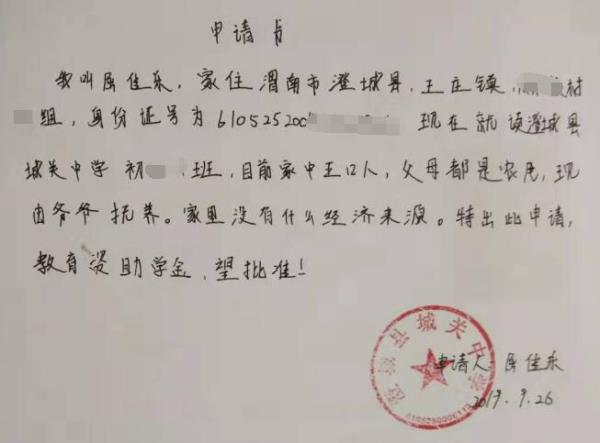 申请书
我叫屈佳乐，家住渭南市澄城县，王庄镇，村
组，身份证号为61052520 现在就读澄城县
城关中学 初 班，目前家中五口人，父母都是农民，现
由爷爷抚养。家里没有什么经济来源。特出此申请，
教育资助学金，望批准！
澄城县城关中学
申请人 屈佳乐
2019.9.26